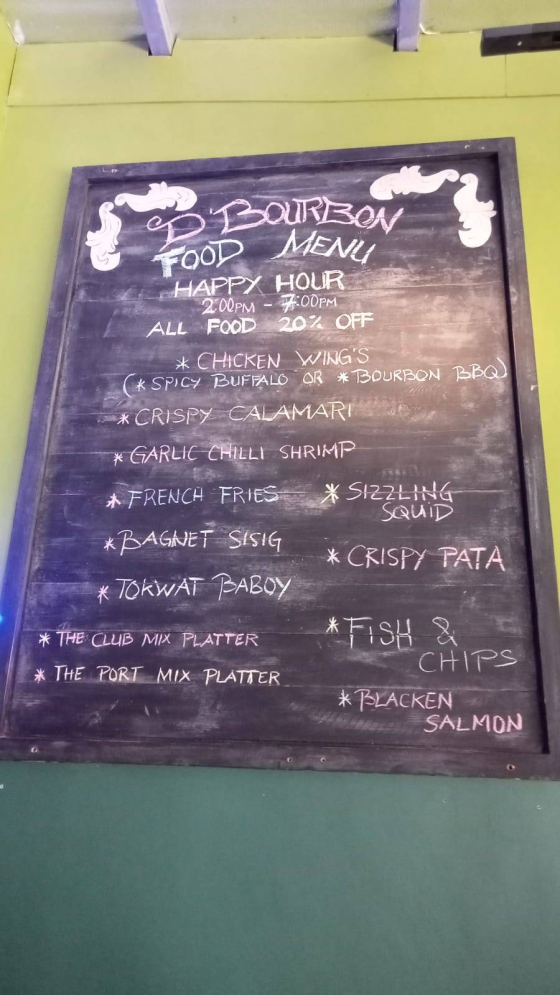 D'BOURBON
FOOD MENU
HAPPY HOUR
2:00PM - 7:00PM
ALL FOOD 20% OFF
* CHICKEN WING'S
(* SPICY BUFFALO OR * BOURBON BBQ)
* CRISPY CALAMARI
* GARLIC CHILLI SHRIMP
* FRENCH FRIES
* BAGNET SISIG
* TOKWAT BABOY
* THE CLUB MIX PLATTER
* THE PORT MIX PLATTER
* SIZZLING
SQUID
* CRISPY PATA
* FISH &
CHIPS
* BLACKEN
SALMON